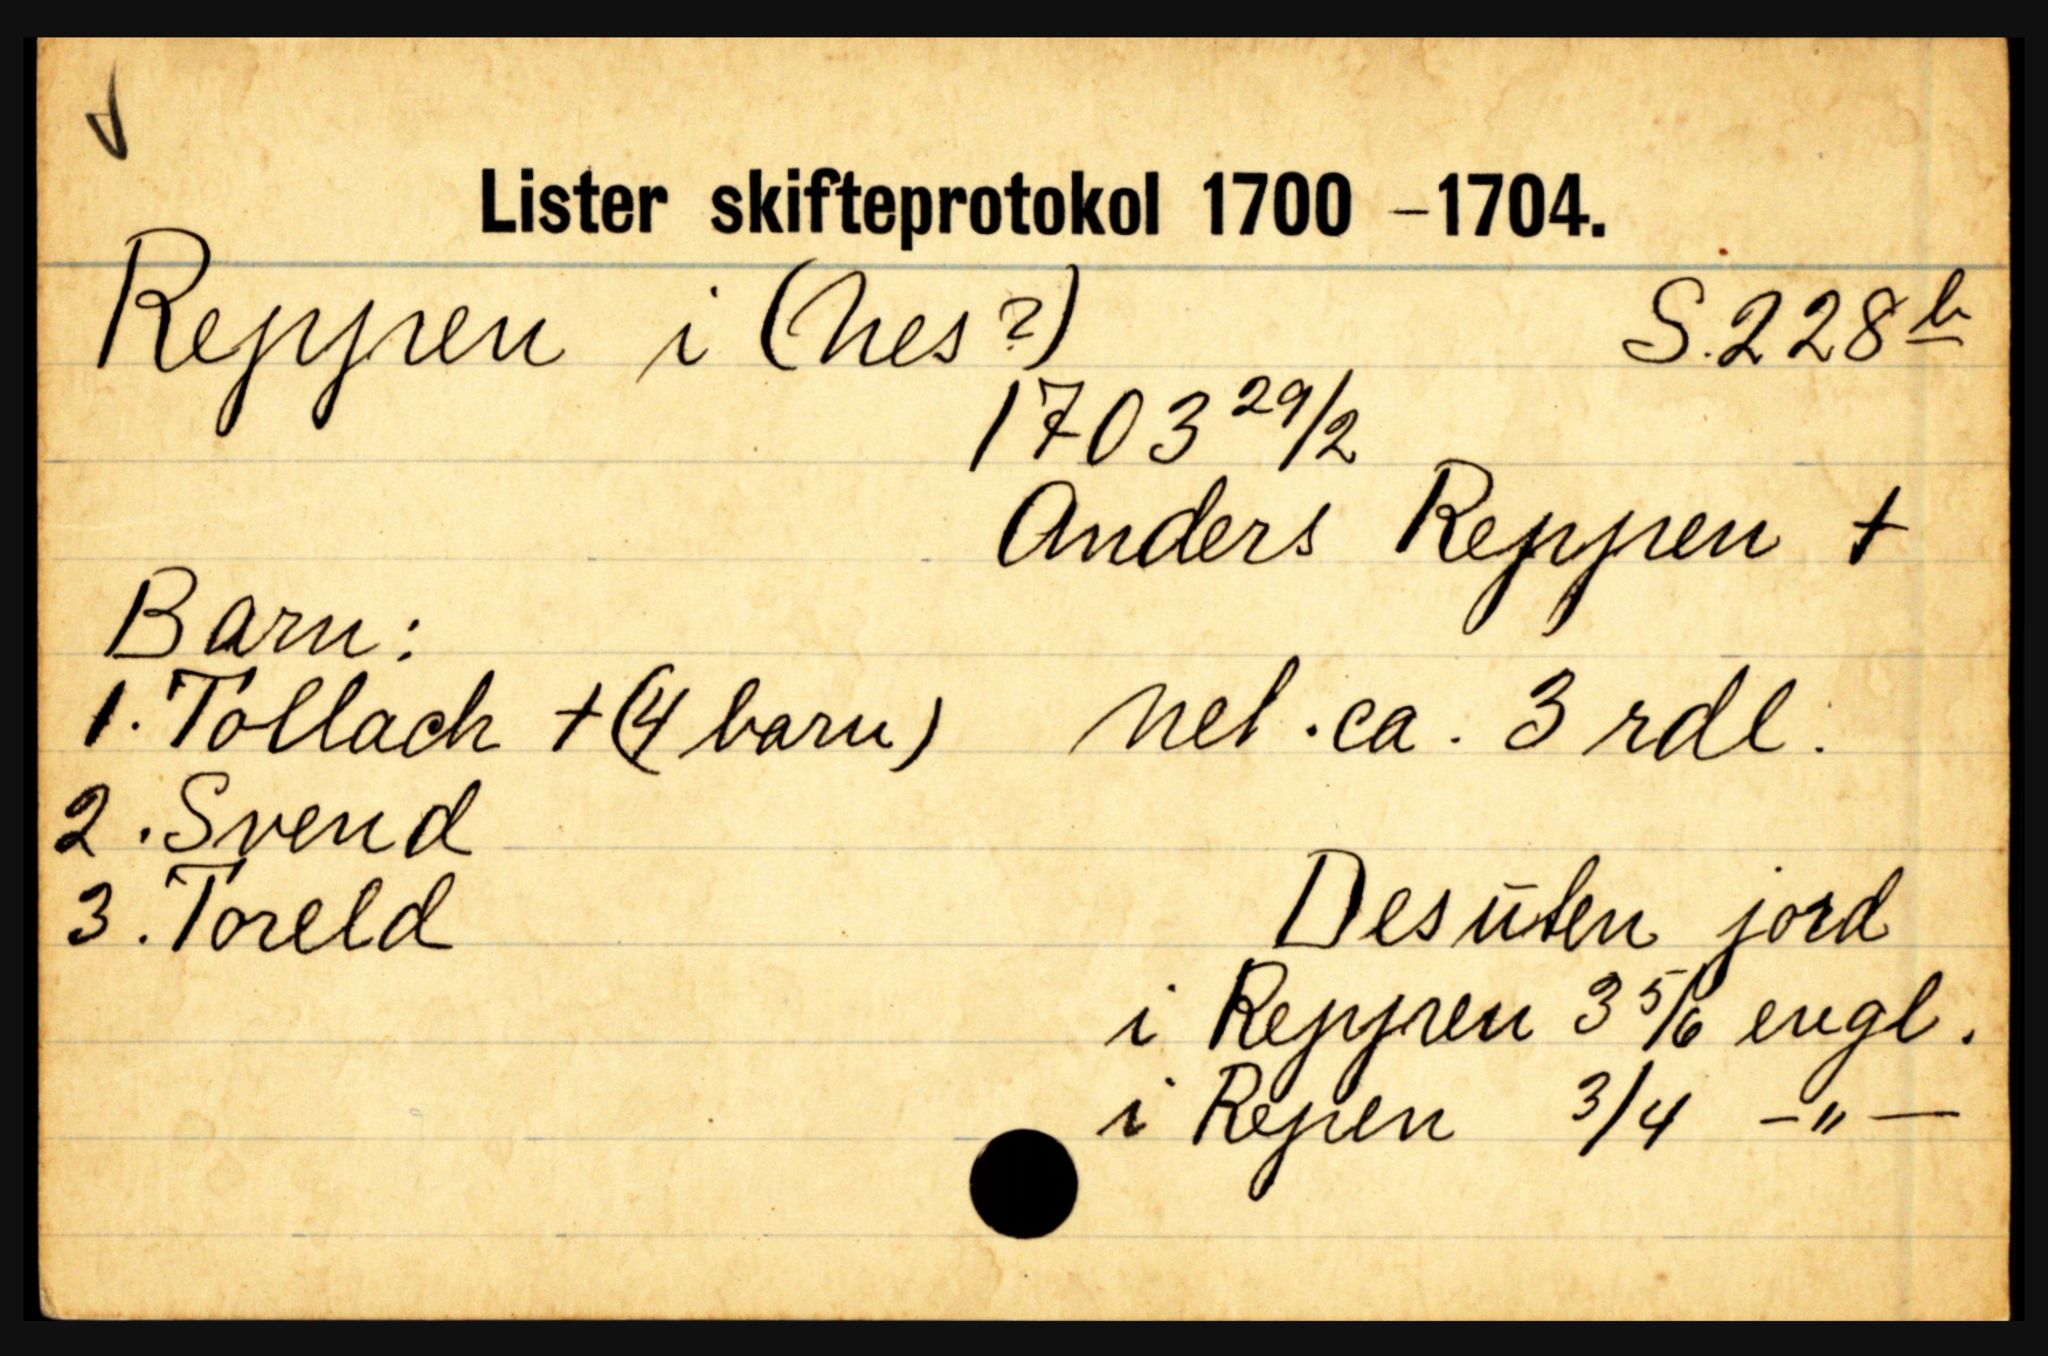 Lister skifteprotokol 1700 -1704.
Reppen i (Nes?) S. 228 b
1703 29/2
Anders Reppen +
Barn:
1. Tollach + (4 barn) nel. ca. 3 rdl.
2. Svend
3. Toreld
Desuten jord
i Reppen 3 5/6 engl.
i Repen 3/4 -"-